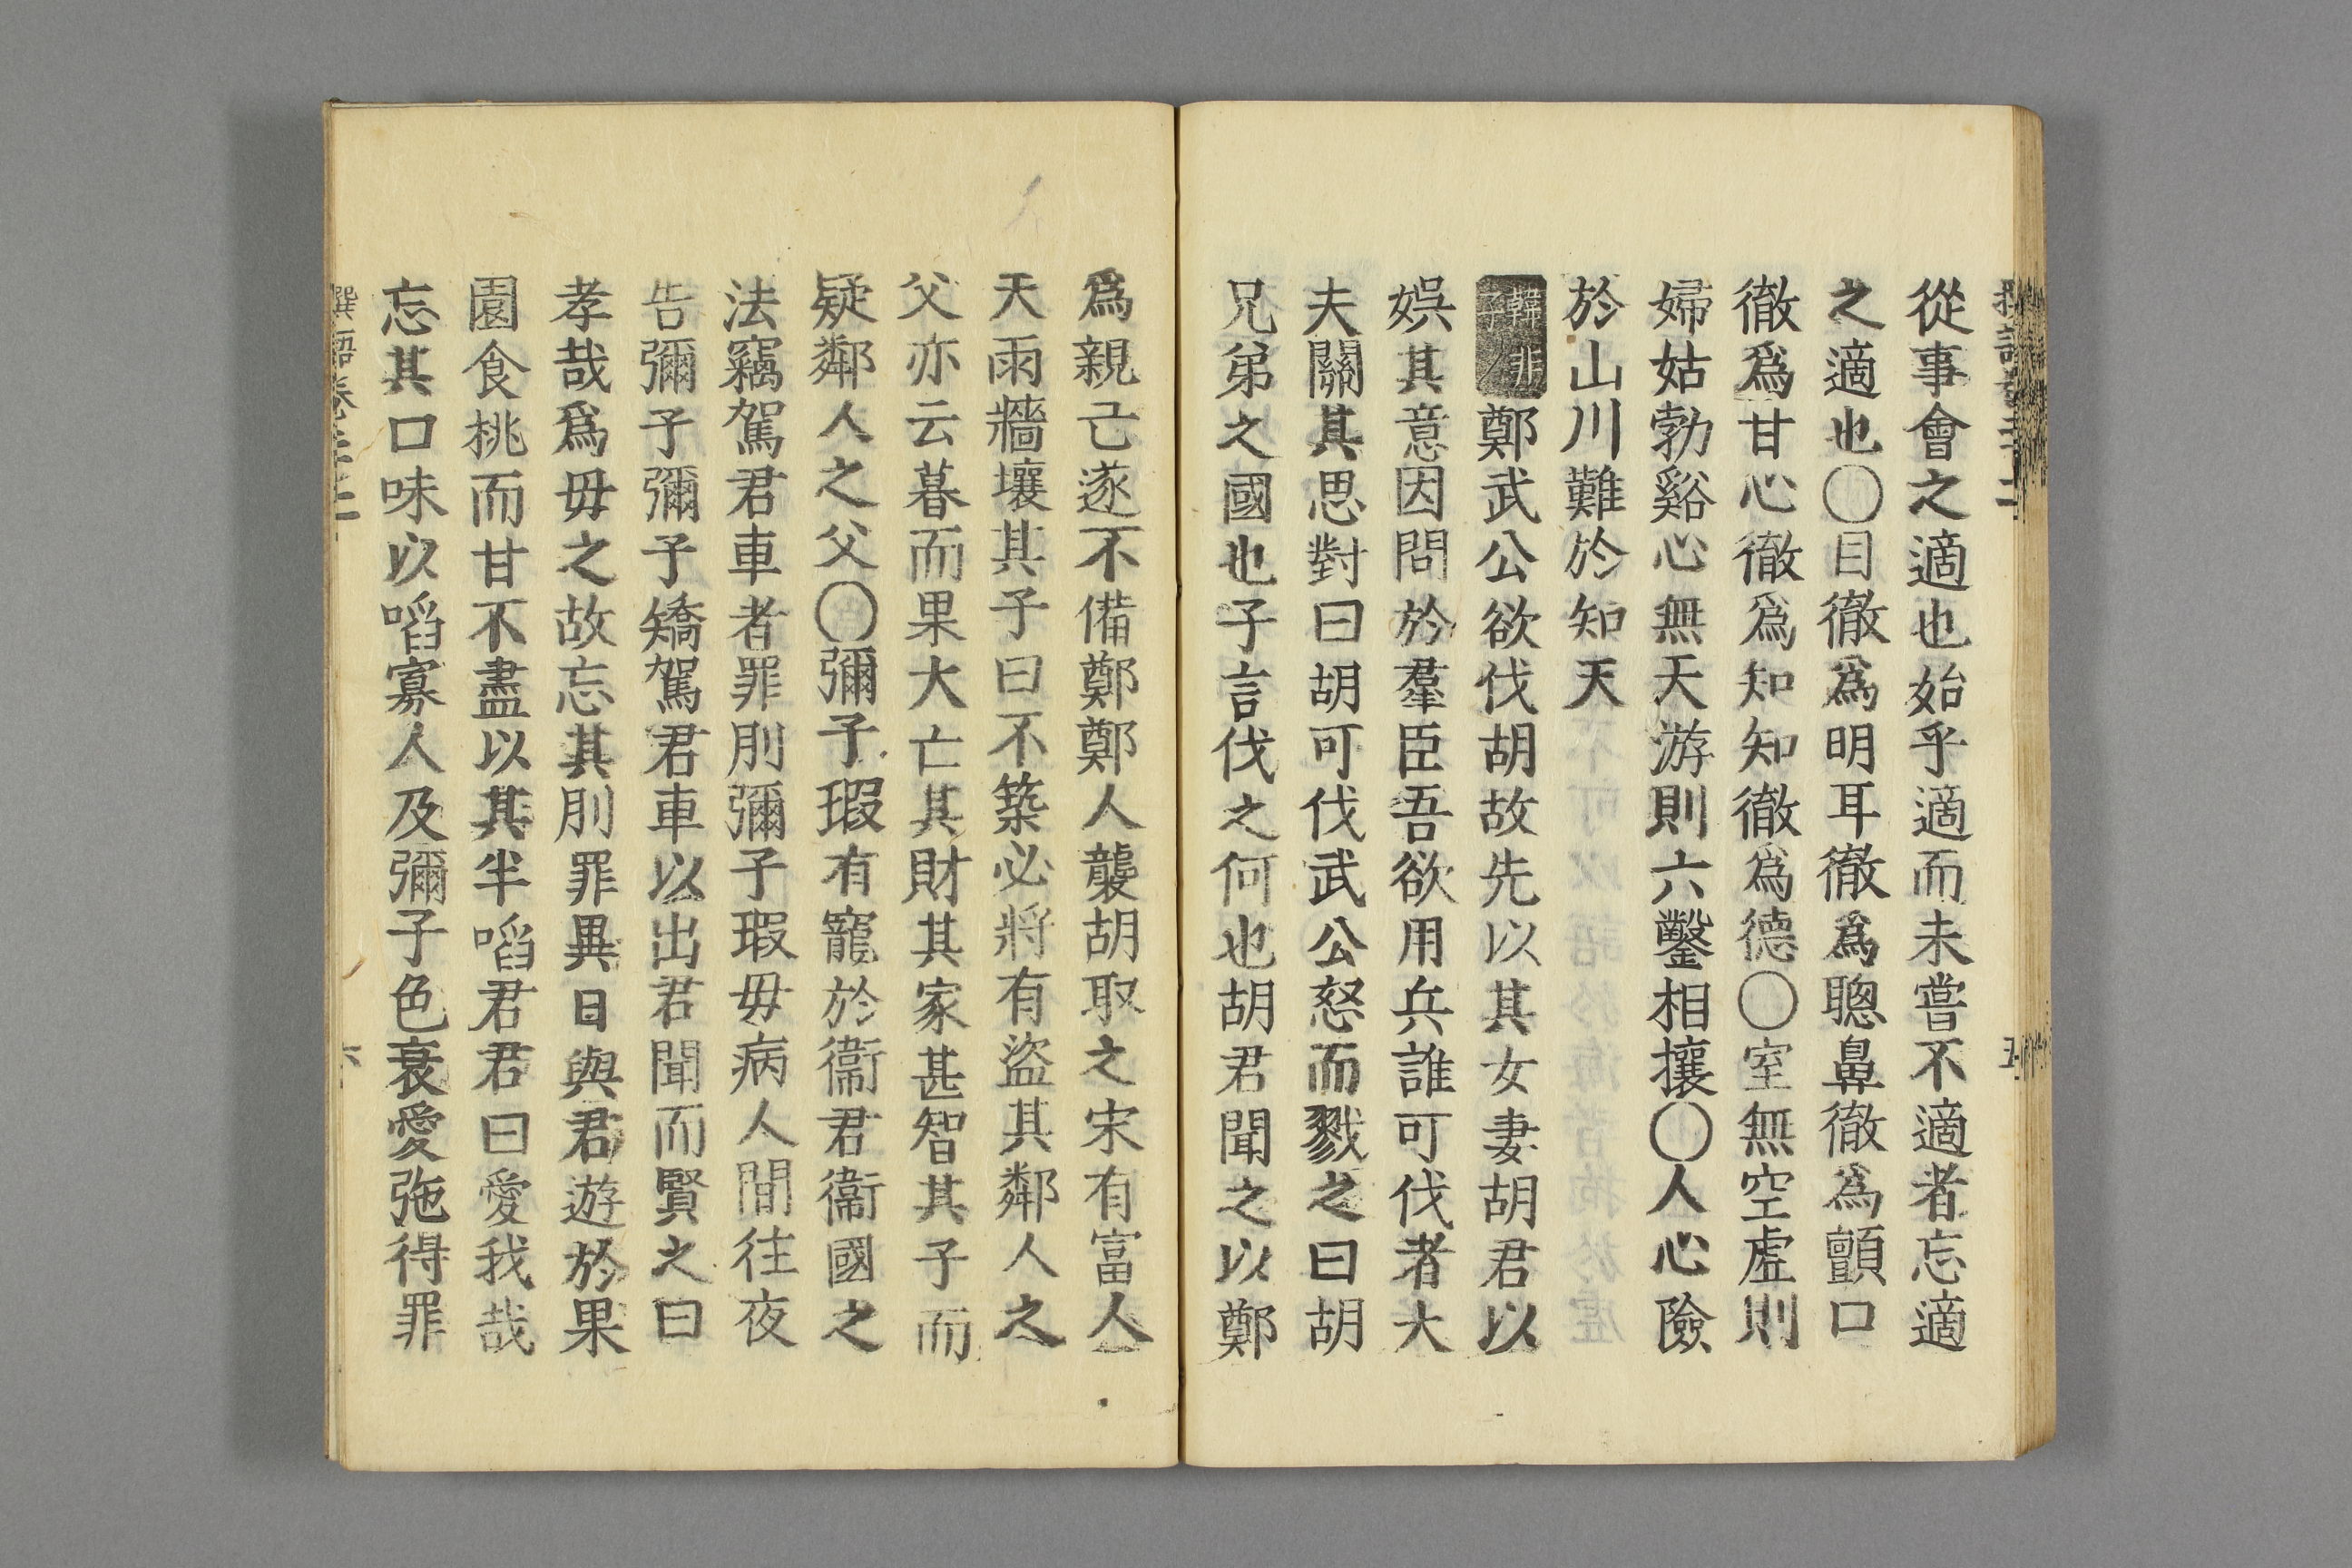 從事會之適也始乎適而未嘗不適者忘適
之適也〇目徹爲明耳徹爲聰鼻徹爲顫口
徹爲甘心徹爲知知徹爲德〇室無空虛則
婦姑勃谿心無天游則六鑿相攘〇人心險
於山川難於知天
韓非子鄭武公欲伐胡故先以其女妻胡君以
娛其意因問於羣臣吾欲用兵誰可伐者大
夫關其思對曰胡可伐武公怒而戮之曰胡
兄弟之國也子言伐之何也胡君聞之以鄭
爲親己遂不備鄭鄭人襲胡取之宋有富人
天雨牆壞其子曰不築必將有盜其鄰人之
父亦云暮而果大亡其財其家甚智其子而
疑鄰人之父〇彌子瑕有寵於衞君衞國之
法竊駕君車者罪刖彌子瑕毋病人間往夜
告彌子彌子矯駕君車以出君聞而賢之曰
孝哉爲毋之故忘其刖罪異日與君遊於果
園食桃而甘不盡以其半啗君君曰愛我哉
忘其口味以啗寡人及彌子色衰愛弛得罪
撰語卷之十二 六